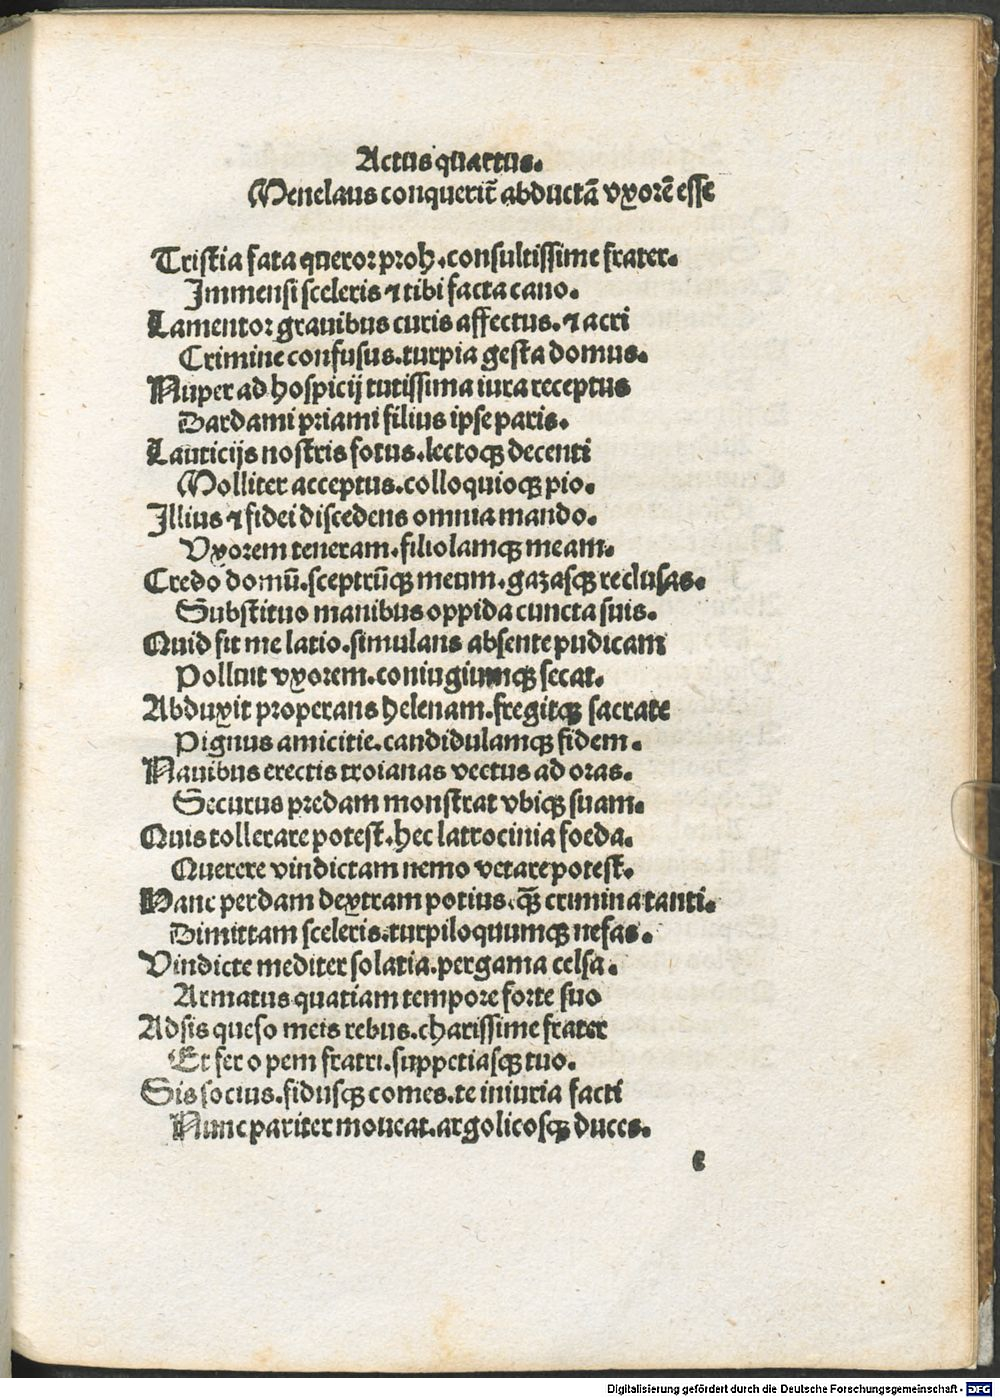 Actus quartus.
Menelaus conquerit̃ abductã vxorẽ esse
Tristia fata queror proh. consultissime frater.
Immensi sceleris ⁊ tibi facta cano.
Lamentor grauibus curis affectus. ⁊ acri
Crimine confusus. turpia gesta domus.
Nuper ad hospicij tutissima iura receptus
Dardami priami filius ipse paris.
Lauticijs nostris fotus. lectoqꝫ decenti
Molliter acceptus. colloquioqꝫ pio.
Illius ⁊ fidei discedens omnia mando.
Vxorem teneram. filiolamqꝫ meam.
Credo domũ. sceptrũqꝫ meum. gazasqꝫ reclusas.
Substituo manibus oppida cuncta suis.
Quid fit me latio. simulans absente pudicam
Polluit vxorem. coniugiumqꝫ secat.
Abduxit properans helenam. fregitqꝫ sacrate
Pignus amicitie. candidulamqꝫ fidem.
Nauibus erectis troianas vectus ad oras.
Securus predam monstrat vbiqꝫ suam.
Quis tollerare potest. hec latrocinia foeda.
Querere vindictam nemo vetare potest.
Hanc perdam dextram potius. qꝫ̃ crimina tanti.
Dimittam sceleris. turpiloquumqꝫ nefas.
Vindicte mediter solatia. pergama celsa.
Armatus quatiam tempore forte suo
Adsis queso meis rebus. charissime frater
Et fer opem fratri. suppetiasqꝫ tuo.
Sis socius. fidusqꝫ comes. te iniuria facti
Nunc pariter moueat. argolicosqꝫ duces.
c
Digitalisierung gefördert durch die Deutsche Forschungsgemeinschaft - DFG